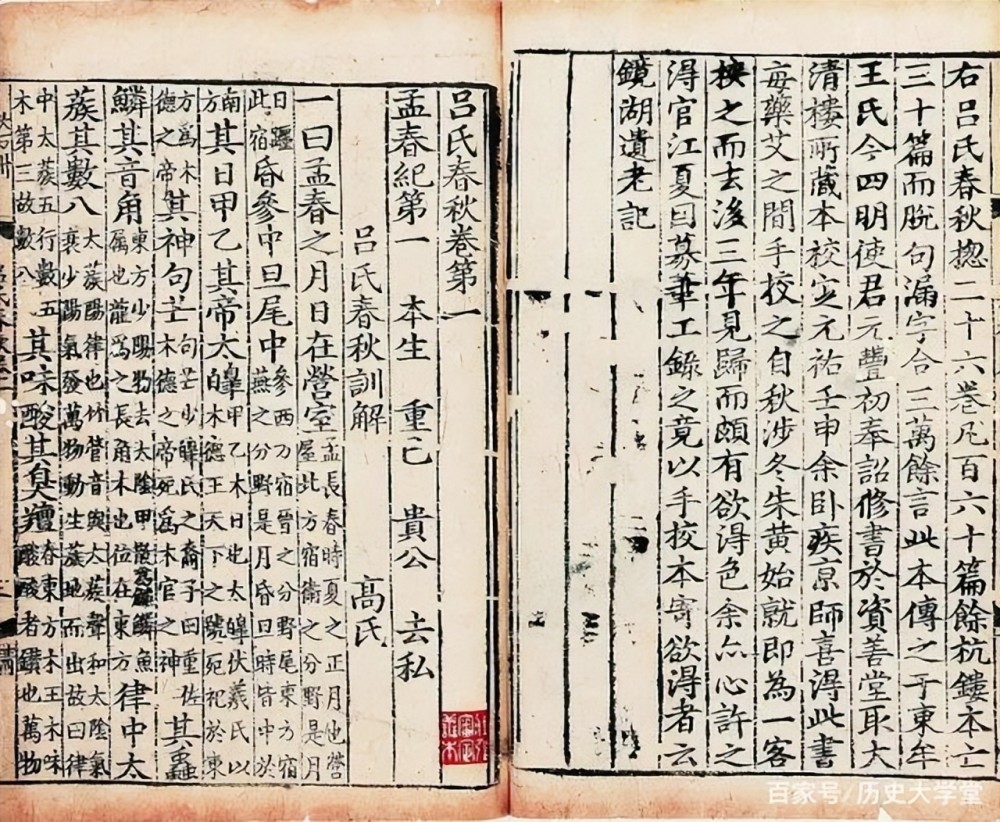 右吕氏春秋揔二十六巻凡百六十篇餘杭鏤本亡
三十篇而脱句漏字合三萬餘言此本傳之于東牟
王氏今四明使君元豐初奉詔修書於資善堂取大
清樓所藏本校定元祐壬申余卧疾京師喜得此書
每藥艾之間手校之自秋涉冬朱黄始就即為一客
挾之而去後三年見歸而頗有欲得色余亦心許之
得官江夏因募筆工錄之竟以手校本寄欲得者云
鏡湖遺老記
吕氏春秋卷第一
孟春紀第一 本生 重己 貴公 去私
吕氏春秋訓解 高氏
一曰孟春之月日在營室孟長春時夏之正月也營室北方宿衛之分野是月
日躔此宿昏參中旦尾中參西方宿晉之分野尾東方宿燕之分野是月昏旦時皆中於
南方其日甲乙其帝太皞甲乙木日也太皞伏羲氏以木德王天下之號死祀於東
方為木德之帝其神句芒句芒少皞氏之裔子曰重佐木德之帝死為木官之神其蟲
鱗其音角東方少陽物去太陰甲散為鱗鱗魚屬也龍為之長角木也位在東方律中太
蔟其數八太蔟陽律也竹管音與太蔟聲和太陰氣衰少陽氣發萬物動生蔟地而出故曰律
中太蔟五行數五木第三故數八其味酸其臭羶春東方木王木味酸酸者鑽也萬物
百家号/历史大学堂